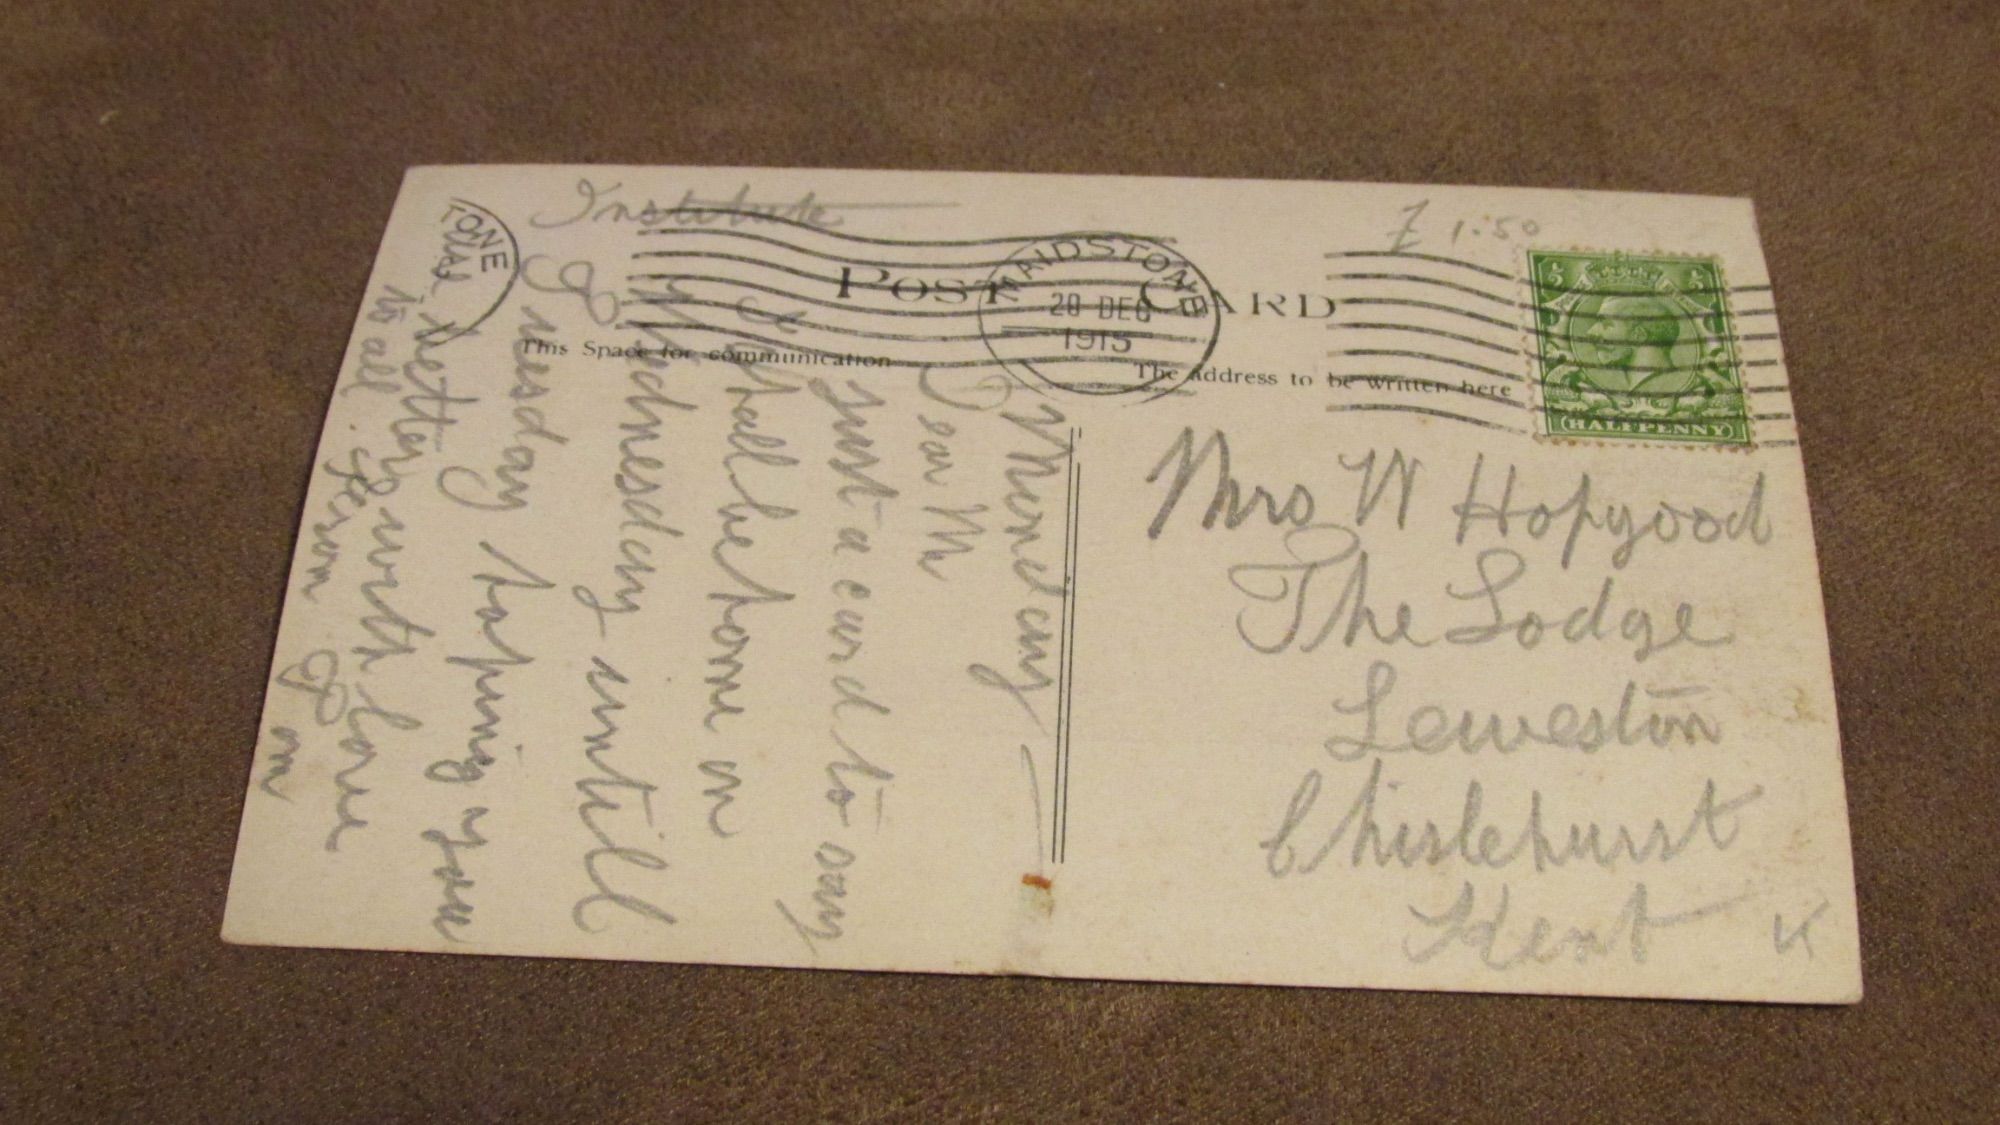 Institute
£ 1.50
TONE
MAIDSTONE
28 DEC
1915
POST CARD
This Space for communication
The Address to be written here
HALFPENNY
Mrs W Hopgood
The Lodge
Leweston
Chislehurst
Kent
Monday
Dear M
Just a card to say
I shall be home on
Wednesday until
Tuesday hoping you
are better with love
to all. From